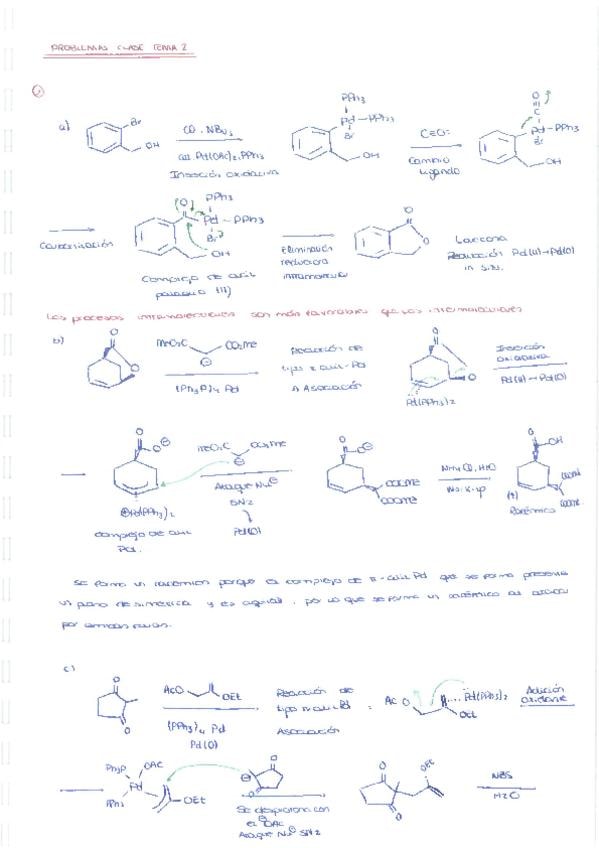 PROBLEMAS CLASE TEMA 2
a)
Br
OH
CO, NBu3
cat. Pd(OAc)2, PPh3
Inserción oxidativa
PPh3
Pd-PPh3
Br
OH
C≡O:
Cambio
ligando
O
C
Pd-PPh3
Br
OH
Carbonilación
O
PPh3
Pd-PPh3
Br
OH
Complejo de acil
paladio (II)
Eliminación
reductora
intramolecular
O
O
Lactona
Reducción Pd(II)→Pd(0)
in situ.
Los procesos intramoleculares son más favorables que los intermoleculares
b)
O
O
MeO2C
CO2Me
(Ph3P)4 Pd
Reacción de
tipo π alil-Pd
Asociación
O
O
Pd(PPh3)2
Inserción
oxidativa
O
O⊖
⊕Pd(PPh3)2
Complejo de alil
Pd.
MeO2C
CO2Me
⊖
Ataque Nu⊖
SN2
Pd(0)
O
O⊖
COOMe
COOMe
NH4Cl, H2O
Work-up
O
OH
COOMe
COOMe
Racémico
Se forma un racémico porque el complejo de π-alil Pd que se forma presenta
un plano de simetría y es aquiral, por lo que se forma un racémico al atacar
por ambas caras.
c)
O
O
AcO
OEt
(PPh3)4 Pd
Pd(0)
Reacción de
tipo π alil Pd
Asociación
AcO
Pd(PPh3)2
OEt
Adición
oxidante
Ph3P
OAc
Pd
PPh3
OEt
O
⊖
O
Se desprotona con
el ⊖OAc
Ataque Nu⊖ SN2
O
O
OEt
NBS
H2O